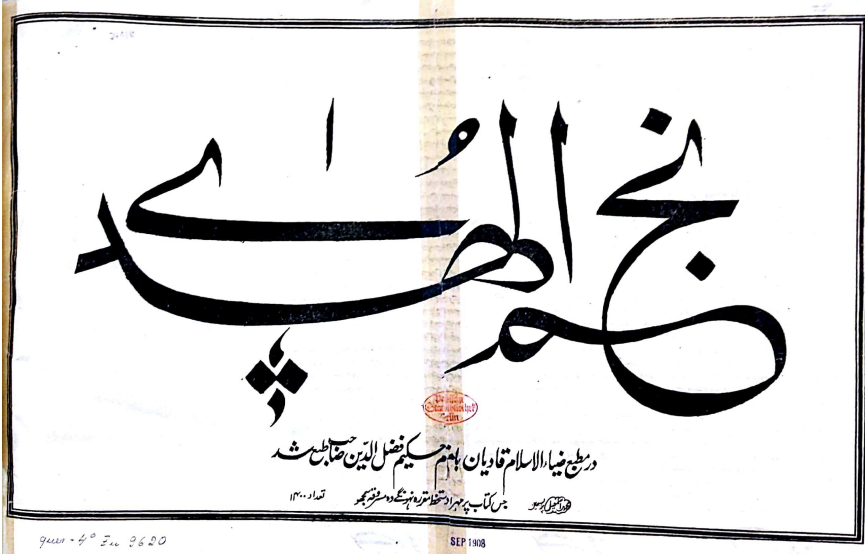 نجم الهدےٰ
در مطبع ضیاءالاسلام قادیان باہتمام حکیم فضل الدین صاحب طبع شد
جس کتاب پر مہر اور دستخط مقررہ نہ ہونگے وہ مسروقہ سمجھو تعداد
quer - 4° Zu 9620
SEP 1908